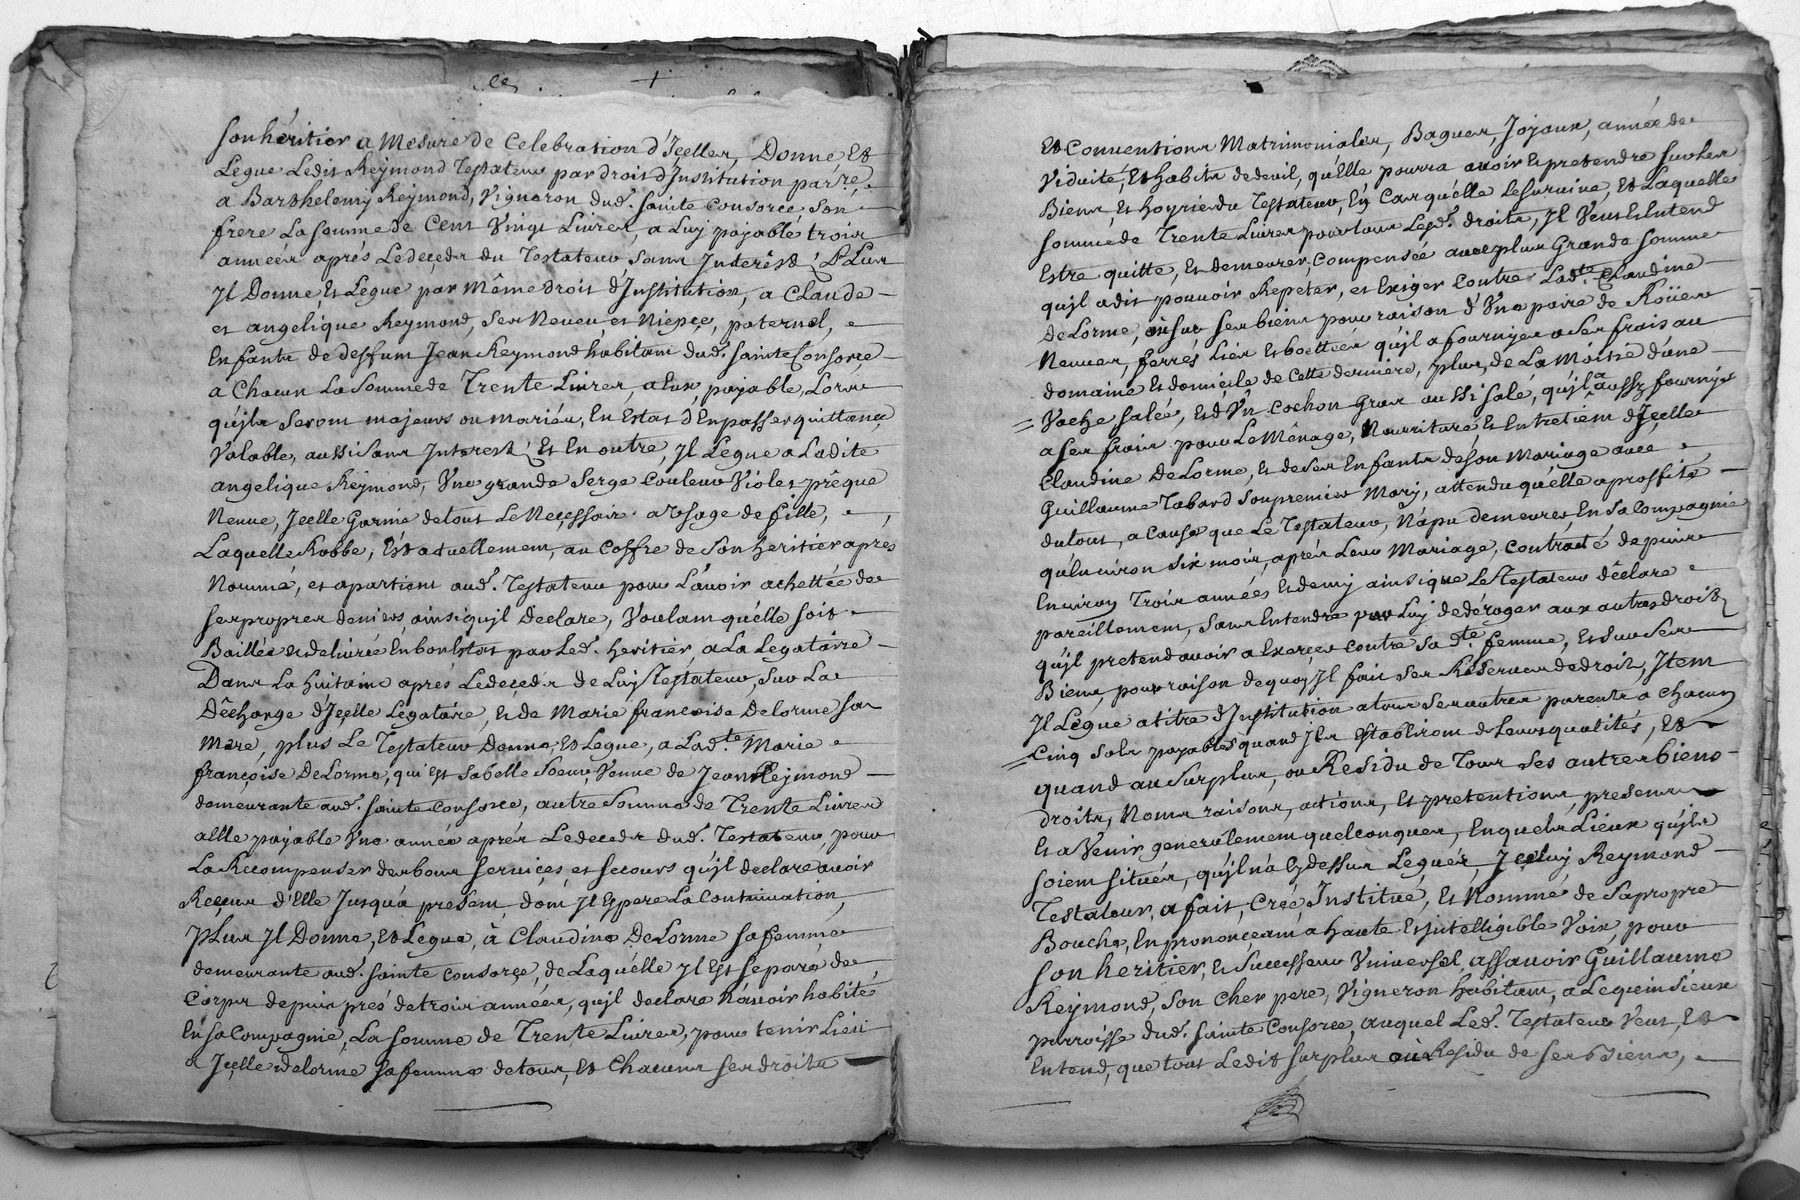 son héritier a Mesure de Celebration d'Jçelles, Donne, Et
Légue Ledit Reymond Testateur par droit d'Institution part.re
a Barthelemy Reymond, Vigneron dud. Sainte Consorce, Son
frere La somme de Cent Vingt Livres, a Luy payable trois
années aprés Le deçeds du Testateur Sans Interêst; Plus
Jl Donne, Et Legue par Même droit d'Institution, a Claude
et angelique Reymond, Ses Neveu et Niepçe, paternel,
Enfants de deffunt Jean Reymond habitant dud. Sainte Consorce
a Chacun La Somme de Trente Livres, a Eux payable, Lors
qu'jls Seront majeurs ou mariés, En Estat d'En passer quittançe
Valable, aussi Sans Interest; Et En outre, Jl Légue a Ladite
angelique Reymond, Une grande Serge Couleur Violet prêque
Neuve, Jcelle Garnie de tout Le Necessair. a Vsage de fille,
Laquelle Robbe, Est actuellement, au Coffre de Son heritier apres
Nommé, et apartient aud. Testateur pour L'avoir achettée de
ses propres deniers, ainsi qu'jl Declare, Voulant qu'élle soit
Baillée et delivrée En bon Estat par Led. heritier, a La Legataire
Dans La huitaine aprés Le deçeds de Luy Testateur, Sur La
Décharge d'Jçelle Légataire, et de Marie françoise Delorme Sa
Mere, plus Le Testateur Donne, Et Legue, a Lad.te Marie
françoise DeLorme, qui Est Sa belle Soeur, Veuve de Jean Reymond
demeurante aud. Sainte Consorce, autre Somme de Trente Livres
a Elle payable Une année aprés Le deçeds dud. Testateur, pour
La Recompenser des bons Serviçes, et secours qu'jl declare avoir
Reçeus d'Elle Jusqu'á présent, dont Jl Espere La Continuation,
Plus Jl Donne, Et Legue, à Claudine DeLorme Sa femme
demeurante aud. Sainte Consorçe, de Laquélle Jl Est Separé de
Corps depuis prés de trois années, qu'jl declare N'avoir habité
En Sa Compagnie, La somme de Trente Livres, pour tenir Lieu
a Jçelle delorme Sa femme de tous, Et Chacuns Ses droits
Et Conventions Matrimoniales, Bagues, Joyaux, année de
Viduité, Et habits de deuil, qu'Elle pourra avoir Et pretendre sur Les
Biens, Et hoyrie du Testateur, En Cas qu'élle Le Survive, Et Laquelle
Somme de Trente Livres pour tous Lesd. droits, Jl Veut Et Entend
Estre quitte, Et demeurer, Compensée avec plus Grande Somme
qu'jl a dit pouvoir Repeter, et Exiger Contre Lad.te Claudine
deLorme, ou Sur ses biens pour raison d'Une paire de Roües
Neuves, ferrés Liés Et boettées qu'jl a fournjes a Ses frais au
domaine Et domicile de Cette derniere, plus, de La Moitié d'une
Vache, Salée, Et d'Un Cochon Gras aussi salé, qu'jl a aussy fournjs
a ses frais pour Le Ménage, Nourriture Et Entretient d'Jçelle
Claudine DeLorme, Et de Ses Enfants de Son Mariage avec
Guillaume Tabard Son premier Mary, attendu qu'élle a proffité
du tout, a Cause que Le Testateur, N'a pu demeurer En Sa Compagnie
qu'Environ Six mois, aprés Leur Mariage, Contracté depuis
Environ Trois années Et demy ainsi que Le Testateur déclare
pareillement, Sans Entendre par Luy dedéroger aux autres droits
qu'jl pretend avoir a Exerçer Contre Sa d.te femme, Et Sur Ses
Biens, pour raison de quoy Jl fait Ses Réserves de droit, Jtem
Jl Légue a titre d'Institution a tous Ses autres parents a Chacun
Cinq Sols payables quand Jls Establiront de Leurs qualités, Et
quand au Surplus, ou Residu de Tous Ses autres biens
droits, Noms raisons, actions, Et pretentions, presents
Et a Venir generálement quelconques, En quels Lieux qu'jls
soient situés, qu'jl n'a Cy dessus Legués, Jceluy Reymond
Testateur, a fait, Créé Institué, Et Nommé de Sa propre
Bouche, En prononçeant á haute Et Intelligible Voix, pour
Son heritier, Et Successeur Universel assavoir Guillaume
Reymond, Son Cher pere, Vigneron habitant, a Lequeim Sieux
parroisse dud. Sainte Consorce, auquel Led. Testateur Veut, Et
Entend, que tout Ledit Surplus ou Residu de Ses biens,